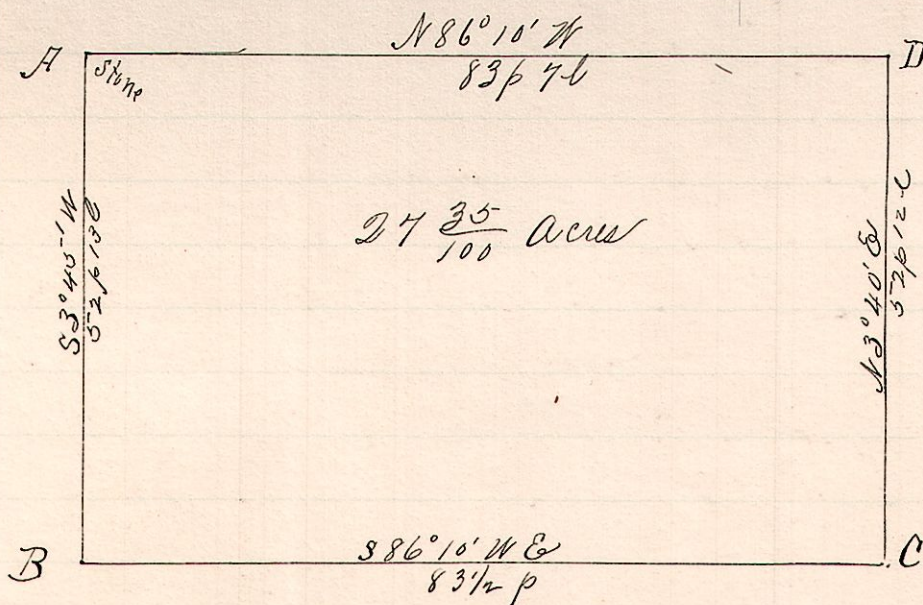 N 86° 10' W
A
D
83p 7l
Stone
S 3° 45' W
52p 13l
27 35/100 Acres
N 3° 40' E
52p 12l
S 86° 10' W E
B
C
83 1/2 p